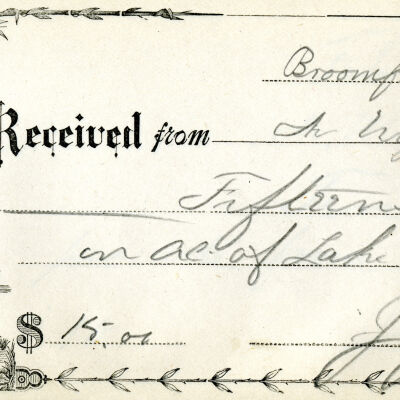 Broomf
Received from
Fifteen
on ac of Lake
$ 15.00